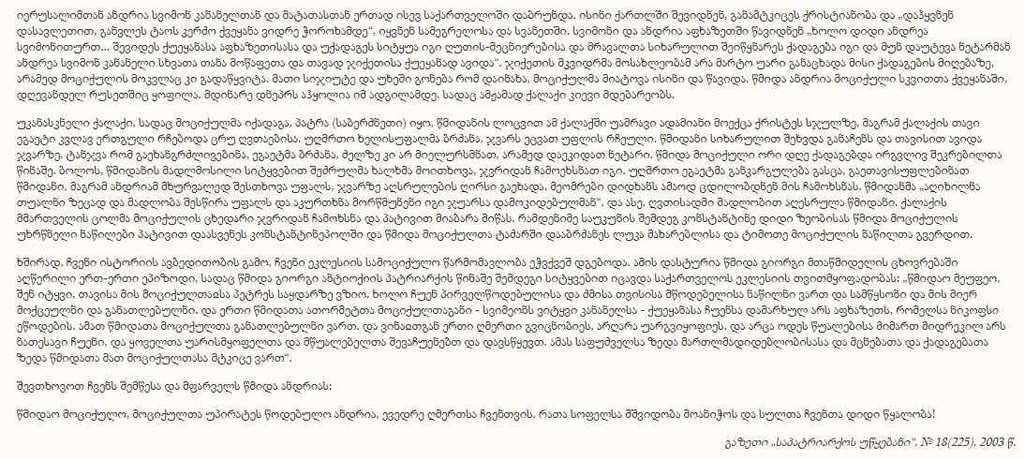 იერუსალიმთან ანდრია სვიმონ კანანელთან და მატათასთან ერთად ისევ საქართველოში დაბრუნდა. ისინი ქართლში შევიდნენ, განამტკიცეს ქრისტიანობა და „დაჰყვნენ
დასავლეთით, განვლეს ტაოს კერძო ქვეყანა ვიდრე ჭოროხამდე“, იყვნენ სამეგრელოსა და სვანეთში. სვიმონი და ანდრია აფხაზეთში წავიდნენ „ხოლო დიდი ანდრეა
სვიმონითურთ... შევიდეს ქუეყანასა აფხაზეთისასა და უქადაგეს სიტყუა იგი ღუთის-მეცნიერებისა და მრავალთა სიხარულით შეიწყნარეს ქადაგება იგი და მუნ დაუტევა ნეტარმან
ანდრეა სვიმონ კანანელი სხვათა თანა მოწაფეთა და თავად ჯიქეთისა ქუეყანად ავიდა“. ჯიქეთის მკვიდრმა მოსახლეობამ არა მარტო უარი განაცხადა მისი ქადაგების მიღებაზე,
არამედ მოციქულის მოკვლაც კი გადაწყვიტა. მათი სიჯიუტე და უხეში გონება რომ დაინახა, მოციქულმა მიატოვა ისინი და წავიდა. წმიდა ანდრია მოციქული სკვითთა ქვეყანაში,
დღევანდელ რუსეთშიც ყოფილა. მდინარე დნეპრს აჰყოლია იმ ადგილამდე, სადაც ამჟამად ქალაქი კიევი მდებარეობს.
უკანასკნელი ქალაქი, სადაც მოციქულმა იქადაგა, პატრა (საბერძნეთი) იყო. წმიდანის ლოცვით ამ ქალაქში უამრავი ადამიანი მოექცა ქრისტეს სჯულზე, მაგრამ ქალაქის თავი
ეგაეტი კვლავ ერთგული რჩებოდა ცრუ ღვთაებისა. უღმრთო ხელისუფალმა ბრძანა, ჯვარს ეცვათ უფლის რჩეული. წმიდანი სიხარულით შეხვდა განაჩენს და თავისით ავიდა
ჯვარზე. ტანჯვა რომ გაეხანგრძლივებინა, ეგაეტმა ბრძანა, ძელზე კი არ მიელურსმნათ, არამედ დაეკიდათ ნეტარი. წმიდა მოციქული ორი დღე ქადაგებდა ირგვლივ შეკრებილთა
წინაშე. ბოლოს, წმიდანის მადლმოსილი სიტყვებით შეძრულმა ხალხმა მოითხოვა, ჯვრიდან ჩამოეხსნათ იგი. უღმრთო ეგაეტმა განკარგულება გასცა, გაეთავისუფლებინათ
წმიდანი, მაგრამ ანდრიამ მხურვალედ შესთხოვა უფალს, ჯვარზე აღსრულების ღირსი გაეხადა. მეომრები დიდხანს ამაოდ ცდილობდნენ მის ჩამოხსნას. წმიდანმა „აღიხილნა
თუალნი ზეცად და მადლობა შესწირა უფალს და აკურთხნა მორწმუნენი იგი ჯუარსა დამოკიდებულმან“. და ასე, ღვთისადმი მადლობით აღესრულა წმიდანი. ქალაქის
მმართველის ცოლმა მოციქულის ცხედარი ჯვრიდან ჩამოხსნა და პატივით მიაბარა მიწას. რამდენიმე საუკუნის შემდეგ კონსტანტინე დიდი ზეობისას წმიდა მოციქულის
უხრწნელი ნაწილები პატივით დაასვენეს კონსტანტინეპოლში და წმიდა მოციქულთა ტაძარში დააბრძანეს ლუკა მახარებლისა და ტიმოთე მოციქულის ნაწილთა გვერდით.
ხშირად, ჩვენი ისტორიის ავბედითობის გამო, ჩვენი ეკლესიის სამოციქულო წარმომავლობა ეჭვქვეშ დგებოდა. ამის დასტურია წმიდა გიორგი მთაწმიდელის ცხოვრებაში
აღწერილი ერთ-ერთი ეპიზოდი, სადაც წმიდა გიორგი ანტიოქიის პატრიარქის წინაშე შემდეგი სიტყვებით იცავდა საქართველოს ეკლესიის თვითმყოფადობას: „წმიდაო მეუფეო,
შენ იტყვი, თავისა მის მოციქულთაჲსა პეტრეს საყდარზე ვზიო. ხოლო ჩუენ პირველწოდებულისა და ძმისა თვისისა მწოდებელისა ნაწილნი ვართ და სამწყსონი და მის მიერ
მოქცეულნი და განათლებულნი. და ერთი წმიდათა ათორმეტთა მოციქულთაგანი - სვიმეონს ვიტყვი კანანელსა - ქუეყანასა ჩუენსა დამარხულ არს აფხაზეთს, რომელსა ნიკოფსი
ეწოდების. ამათ წმიდათა მოციქულთა განათლებულნი ვართ. და ვინაჲთგან ერთი ღმერთი გვიცნობიეს, არღარა უარგვიყოფიეს. და არცა ოდეს წუალებისა მიმართ მიდრეკილ არს
ნათესავი ჩუენი, და ყოველთა უარისმყოფელთა და მწუალებელთა შევაჩუენებთ და დავსწყევთ. ამას საფუძველსა ზედა მართლმადიდებლობისასა და მცნებათა და ქადაგებათა
ზედა წმიდათა მათ მოციქულთასა მტკიცე ვართ“.
შევთხოვოთ ჩვენს შემწესა და მფარველს წმიდა ანდრიას:
წმიდაო მოციქულო, მოციქულთა უპირატეს წოდებულო ანდრია, ევედრე ღმერთსა ჩვენთვის, რათა სოფელსა მშვიდობა მოანიჭოს და სულთა ჩვენთა დიდი წყალობა!
გაზეთი „საპატრიარქოს უწყებანი“, № 18(225), 2003 წ.